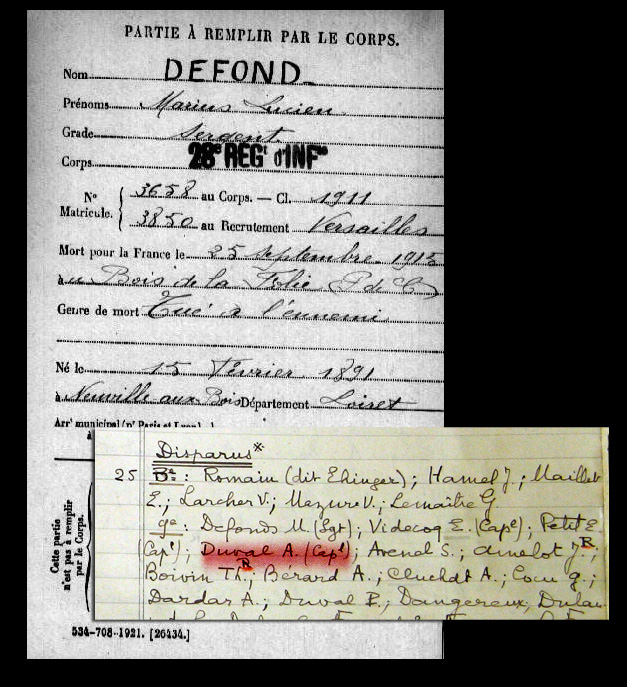 PARTIE À REMPLIR PAR LE CORPS.
Nom DEFOND
Prénoms Marius Lucien
Grade Sergent
Corps 28e REGt d'INFie
No Matricule. 3658 au Corps. — Cl. 1911
3850 au Recrutement Versailles
Mort pour la France le 25 septembre 1915
au Bois de la Folie (P de C)
Genre de mort Tué à l'ennemi
Né le 15 Février 1891
à Neuville aux Bois Département Loiret
Arrt municipal (pr Paris et Lyon)
à
Cette partie
n'est pas à remplir
par le Corps.
534-708-1921. [26434.]
Disparus*
25 Be: Romain (dit Ehinger); Hamel J.; Maillet
E.; Larcher V.; Mezure V.; Lemaître G.
ge: Defonds M (Sgt); Vidocoq E. (Cape); Petit E.
(Capl); Duval A. (Capl); Arenal S.; Amelot J. R;
Boivin Th. R; Bérard A.; Cluchat A.; Cocu g.;
Dardar A.; Duval E.; Dangereux; Dulau